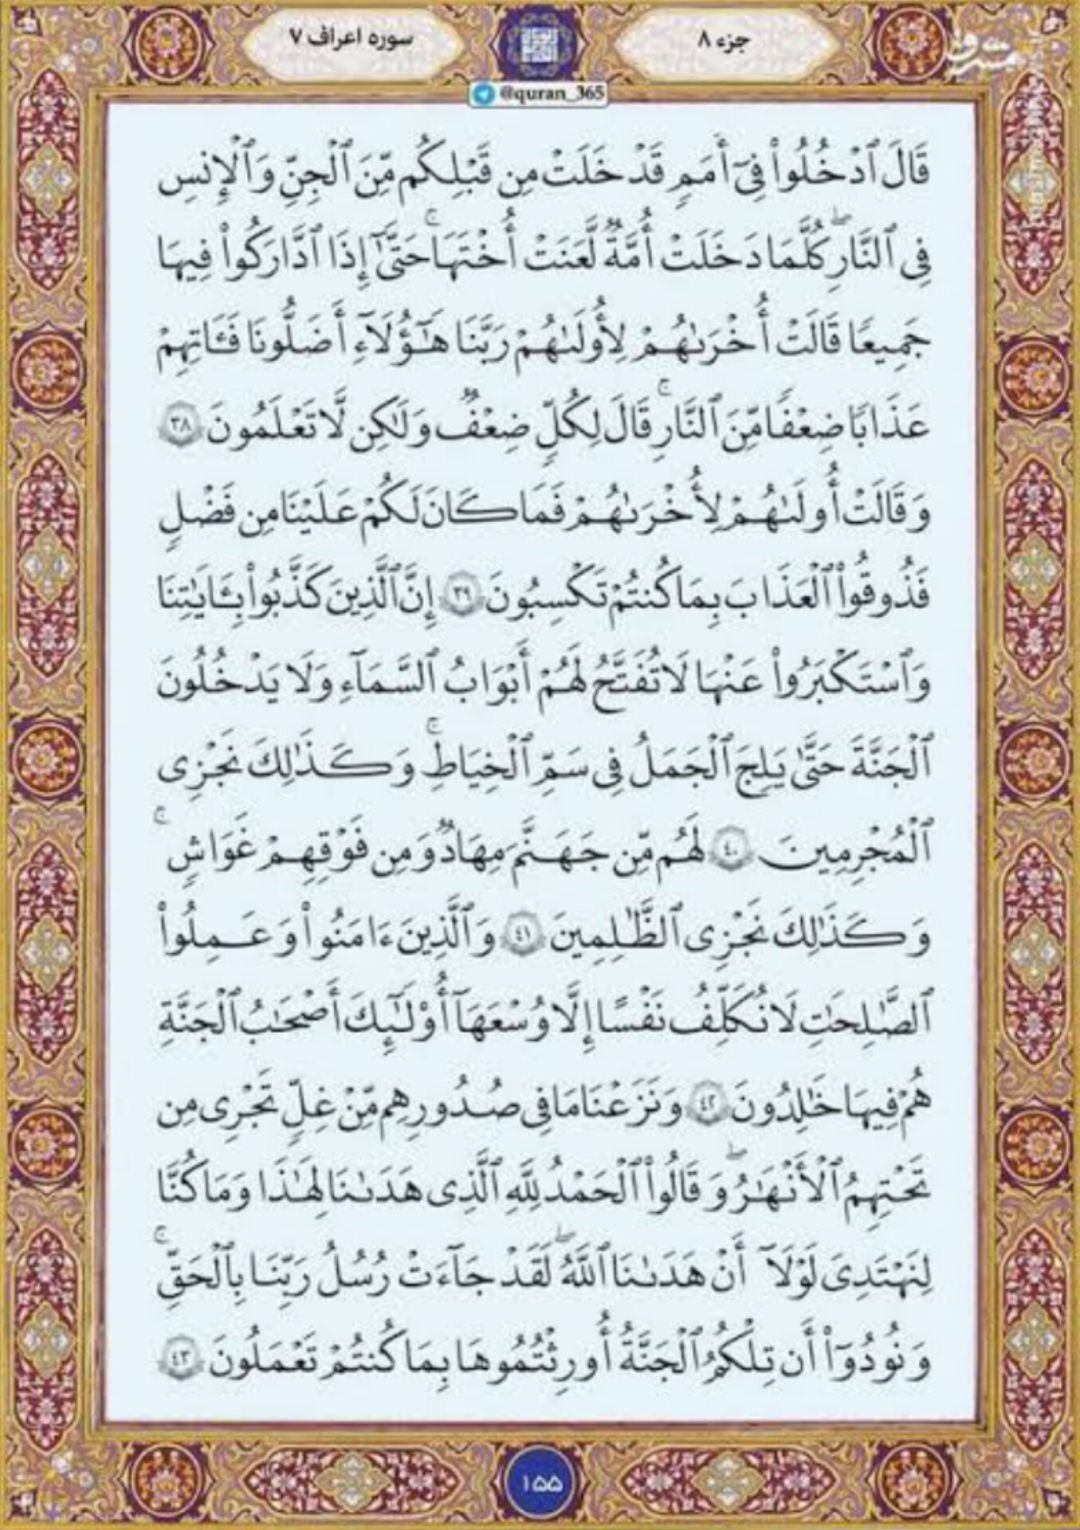 جزء ۸
سوره اعراف ۷
@quran_365
قَالَ ٱدْخُلُوا۟ فِىٓ أُمَمٍ قَدْ خَلَتْ مِن قَبْلِكُم مِّنَ ٱلْجِنِّ وَٱلْإِنسِ
فِى ٱلنَّارِ ۖ كُلَّمَا دَخَلَتْ أُمَّةٌ لَّعَنَتْ أُخْتَهَا ۚ حَتَّىٰٓ إِذَا ٱدَّارَكُوا۟ فِيهَا
جَمِيعًا قَالَتْ أُخْرَىٰهُمْ لِأُولَىٰهُمْ رَبَّنَا هَـٰٓؤُلَآءِ أَضَلُّونَا فَـَٔاتِهِمْ
عَذَابًا ضِعْفًا مِّنَ ٱلنَّارِ ۚ قَالَ لِكُلٍّ ضِعْفٌ وَلَـٰكِن لَّا تَعْلَمُونَ ٣٨
وَقَالَتْ أُولَىٰهُمْ لِأُخْرَىٰهُمْ فَمَا كَانَ لَكُمْ عَلَيْنَا مِن فَضْلٍ
فَذُوقُوا۟ ٱلْعَذَابَ بِمَا كُنتُمْ تَكْسِبُونَ ٣٩ إِنَّ ٱلَّذِينَ كَذَّبُوا۟ بِـَٔايَـٰتِنَا
وَٱسْتَكْبَرُوا۟ عَنْهَا لَا تُفَتَّحُ لَهُمْ أَبْوَابُ ٱلسَّمَآءِ وَلَا يَدْخُلُونَ
ٱلْجَنَّةَ حَتَّىٰ يَلِجَ ٱلْجَمَلُ فِى سَمِّ ٱلْخِيَاطِ ۚ وَكَذَٰلِكَ نَجْزِى
ٱلْمُجْرِمِينَ ٤٠ لَهُم مِّن جَهَنَّمَ مِهَادٌ وَمِن فَوْقِهِمْ غَوَاشٍ ۚ
وَكَذَٰلِكَ نَجْزِى ٱلظَّـٰلِمِينَ ٤١ وَٱلَّذِينَ ءَامَنُوا۟ وَعَمِلُوا۟
ٱلصَّـٰلِحَـٰتِ لَا نُكَلِّفُ نَفْسًا إِلَّا وُسْعَهَآ أُو۟لَـٰٓئِكَ أَصْحَـٰبُ ٱلْجَنَّةِ
هُمْ فِيهَا خَـٰلِدُونَ ٤٢ وَنَزَعْنَا مَا فِى صُدُورِهِم مِّنْ غِلٍّ تَجْرِى مِن
تَحْتِهِمُ ٱلْأَنْهَـٰرُ ۖ وَقَالُوا۟ ٱلْحَمْدُ لِلَّهِ ٱلَّذِى هَدَىٰنَا لِهَـٰذَا وَمَا كُنَّا
لِنَهْتَدِىَ لَوْلَآ أَنْ هَدَىٰنَا ٱللَّهُ ۖ لَقَدْ جَآءَتْ رُسُلُ رَبِّنَا بِٱلْحَقِّ ۚ
وَنُودُوٓا۟ أَن تِلْكُمُ ٱلْجَنَّةُ أُورِثْتُمُوهَا بِمَا كُنتُمْ تَعْمَلُونَ ٤٣
۱۵۵